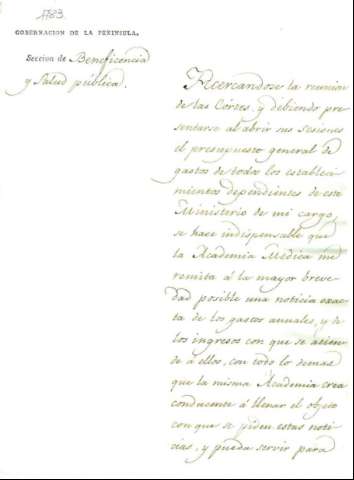 1783.
GOBERNACION DE LA PENINSULA.
Seccion de Beneficencia
y Salud pública.
Acercandose la reunion
de las Córtes, y debiendo pre
sentarse al abrir sus sesiones
el presupuesto general de
gastos de todos los estableci
mientos dependientes de este
Ministerio de mi cargo,
se hace indispensable que
la Academia Médica me
remita á la mayor breve
dad posible una noticia exac
ta de los gastos anuales, y de
los ingresos con que se atien
de á ellos, con todo lo demas
que la misma Academia crea
conducente á llenar el objeto
con que se piden estas noti
cias, y pueda servir para